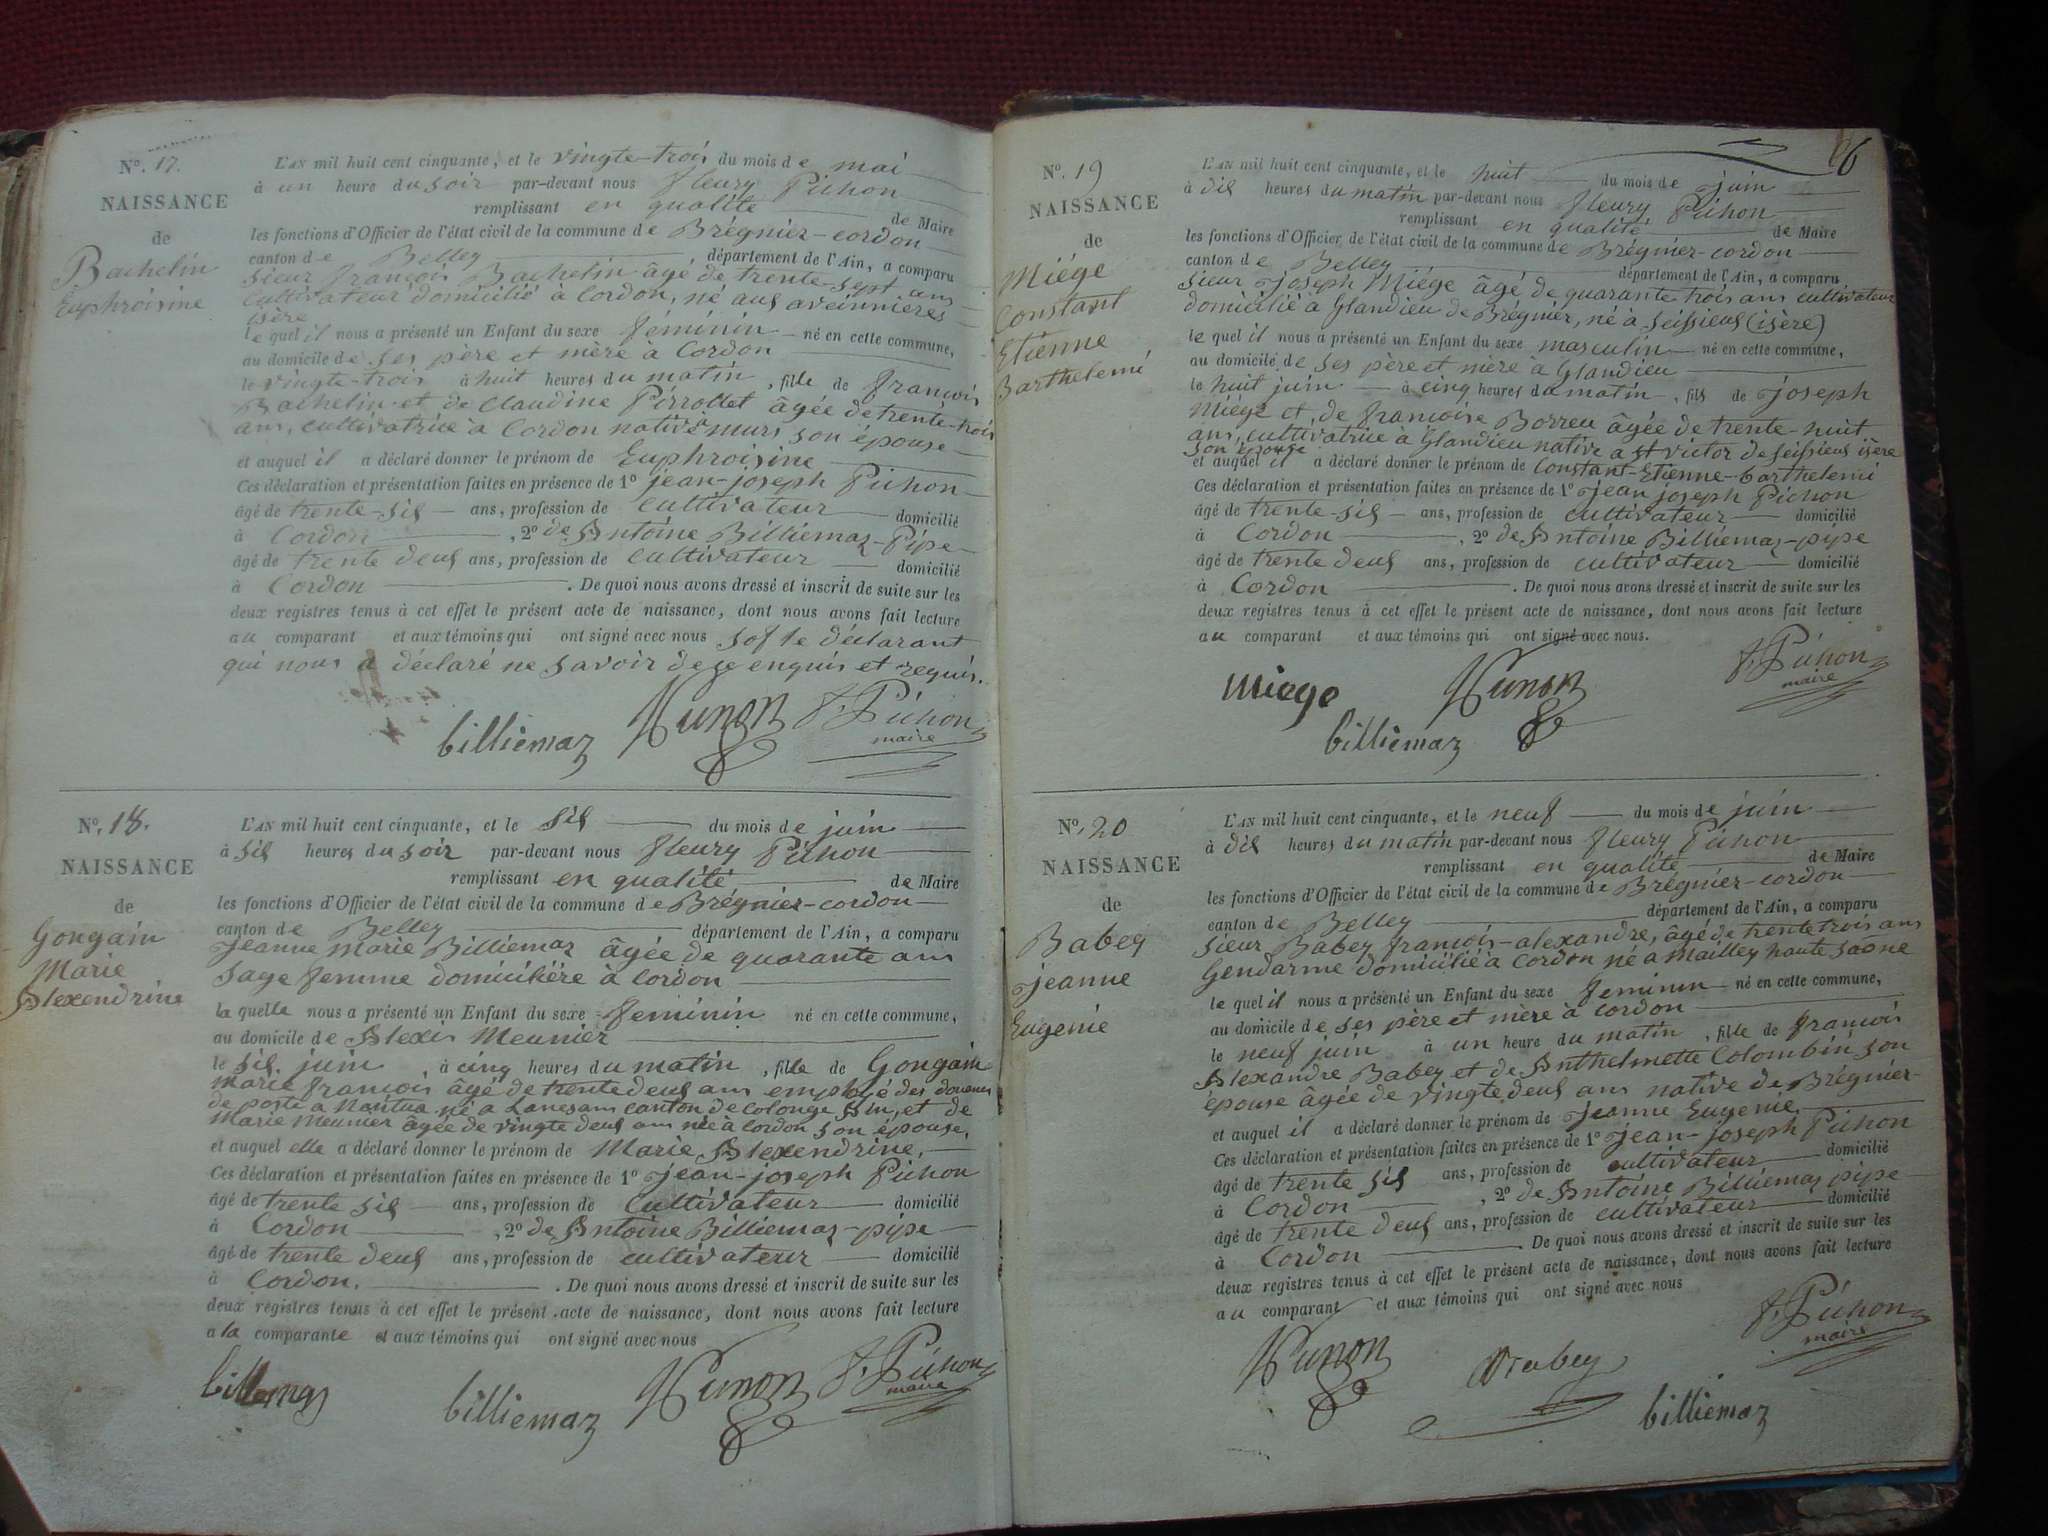 N°. 17.
NAISSANCE
de
Bachelin
Euphroisine
L'AN mil huit cent cinquante, et le vingte-trois du mois de mai
à un heure du soir par-devant nous fleury Pichon
remplissant en qualité de Maire
les fonctions d'Officier de l'état civil de la commune de Brégnier-cordon
canton de Belley département de l'Ain, a comparu
sieur françois Bachelin âgé de trente-sept ans
cultivateur domicilié à Cordon, né aus aveinnières
isère
le quel il nous a présenté un Enfant du sexe féminin né en cette commune,
au domicile de ses père et mère à Cordon
le vingte-trois à huit heures du matin, fille de françois
Bachelin et de Claudine Pirrollet âgée de trente-trois
ans, cultivatrice à Cordon native murs son épouse
et auquel il a déclaré donner le prénom de Euphroisine
Ces déclaration et présentation faites en présence de 1° jean-joseph Pichon
âgé de trente-sis ans, profession de cultivateur domicilié
à Cordon, 2° de Antoine Billiemaz-Pipe
âgé de trente deus ans, profession de cultivateur domicilié
à Cordon. De quoi nous avons dressé et inscrit de suite sur les
deux registres tenus à cet effet le présent acte de naissance, dont nous avons fait lecture
au comparant et aux témoins qui ont signé avec nous sof le déclarant
qui nous a déclaré ne savoir de ce enquis et requis.
billiemaz F. Pichon
maire
N°. 18.
NAISSANCE
de
Gongain
Marie
Alexendrine
L'AN mil huit cent cinquante, et le sis du mois de juin
à sis heures du soir par-devant nous fleury Pichon
remplissant en qualité de Maire
les fonctions d'Officier de l'état civil de la commune de Brégnier-cordon
canton de Belley département de l'Ain, a comparu
jeanne marie Billiemaz âgée de quarante ans
sage femme domicilière à cordon
la quelle nous a présenté un Enfant du sexe feminin né en cette commune,
au domicile de Alexis Meunier
le sis juin, à cinq heures du matin, fille de Gongain
marie françois âgé de trente deus ans employé des douanes
de poste a Nantua né a Lanesans canton de colonge Ain, et de
Marie Meunier âgée de vingte deus ans née à cordon son épouse,
et auquel elle a déclaré donner le prénom de Marie Alexendrine,
Ces déclaration et présentation faites en présence de 1° jean-joseph Pichon
âgé de trente sis ans, profession de cultivateur domicilié
à Cordon, 2° de Antoine Billiemaz-pipe
âgé de trente deus ans, profession de cultivateur domicilié
à Cordon. De quoi nous avons dressé et inscrit de suite sur les
deux registres tenus à cet effet le présent acte de naissance, dont nous avons fait lecture
a la comparante et aux témoins qui ont signé avec nous
billiemaz F. Pichon
maire
26
N°. 19
NAISSANCE
de
Miége
Constant
Etienne
Barthelemi
L'AN mil huit cent cinquante, et le huit du mois de juin
à dis heures du matin par-devant nous fleury Pichon
remplissant en qualité de Maire
les fonctions d'Officier de l'état civil de la commune de Brégnier-cordon
canton de Belley département de l'Ain, a comparu
sieur joseph Miége âgé de quarante trois ans cultivateur
domicilié à Glandieu de Brégnier, né à seissieus (isère)
le quel il nous a présenté un Enfant du sexe masculin né en cette commune,
au domicile de ses père et mère à Glandieu
le huit juin à cinq heures du matin, fils de joseph
Miége et de françoise Borreu âgée de trente-huit
ans, cultivatrice à Glandieu native a st victor de seissieus isère
son épouse
et auquel il a déclaré donner le prénom de Constant-Etienne-barthelemi
Ces déclaration et présentation faites en présence de 1° jean joseph Pichon
âgé de trente-sis ans, profession de cultivateur domicilié
à Cordon, 2° de Antoine Billiemaz-pipe
âgé de trente deus ans, profession de cultivateur domicilié
à Cordon. De quoi nous avons dressé et inscrit de suite sur les
deux registres tenus à cet effet le présent acte de naissance, dont nous avons fait lecture
au comparant et aux témoins qui ont signé avec nous.
miege F. Pichon
maire
billiemaz
N°. 20
NAISSANCE
de
Babey
jeanne
Eugenie
L'AN mil huit cent cinquante, et le neuf du mois de juin
à dis heures du matin par-devant nous fleury Pichon
remplissant en qualité de Maire
les fonctions d'Officier de l'état civil de la commune de Brégnier-cordon
canton de Belley département de l'Ain, a comparu
sieur Babey françois-alexandre, âgé de trente trois ans
Gendarme domicilié à Cordon né a mailley haute saône
le quel il nous a présenté un Enfant du sexe feminin né en cette commune,
au domicile de ses père et mère à cordon
le neuf juin à un heure du matin, fille de françois
Alexandre Babey et de Anthelmette Colombin son
épouse âgée de vingte deus ans native de Brégnier-
et auquel il a déclaré donner le prénom de jeanne Eugenie
Ces déclaration et présentation faites en présence de 1° jean-joseph Pichon
âgé de trente sis ans, profession de cultivateur domicilié
à Cordon, 2° de Antoine Billiemaz pipe
âgé de trente deus ans, profession de cultivateur domicilié
à Cordon. De quoi nous avons dressé et inscrit de suite sur les
deux registres tenus à cet effet le présent acte de naissance, dont nous avons fait lecture
au comparant et aux témoins qui ont signé avec nous
F. Pichon
maire
Babey
billiemaz